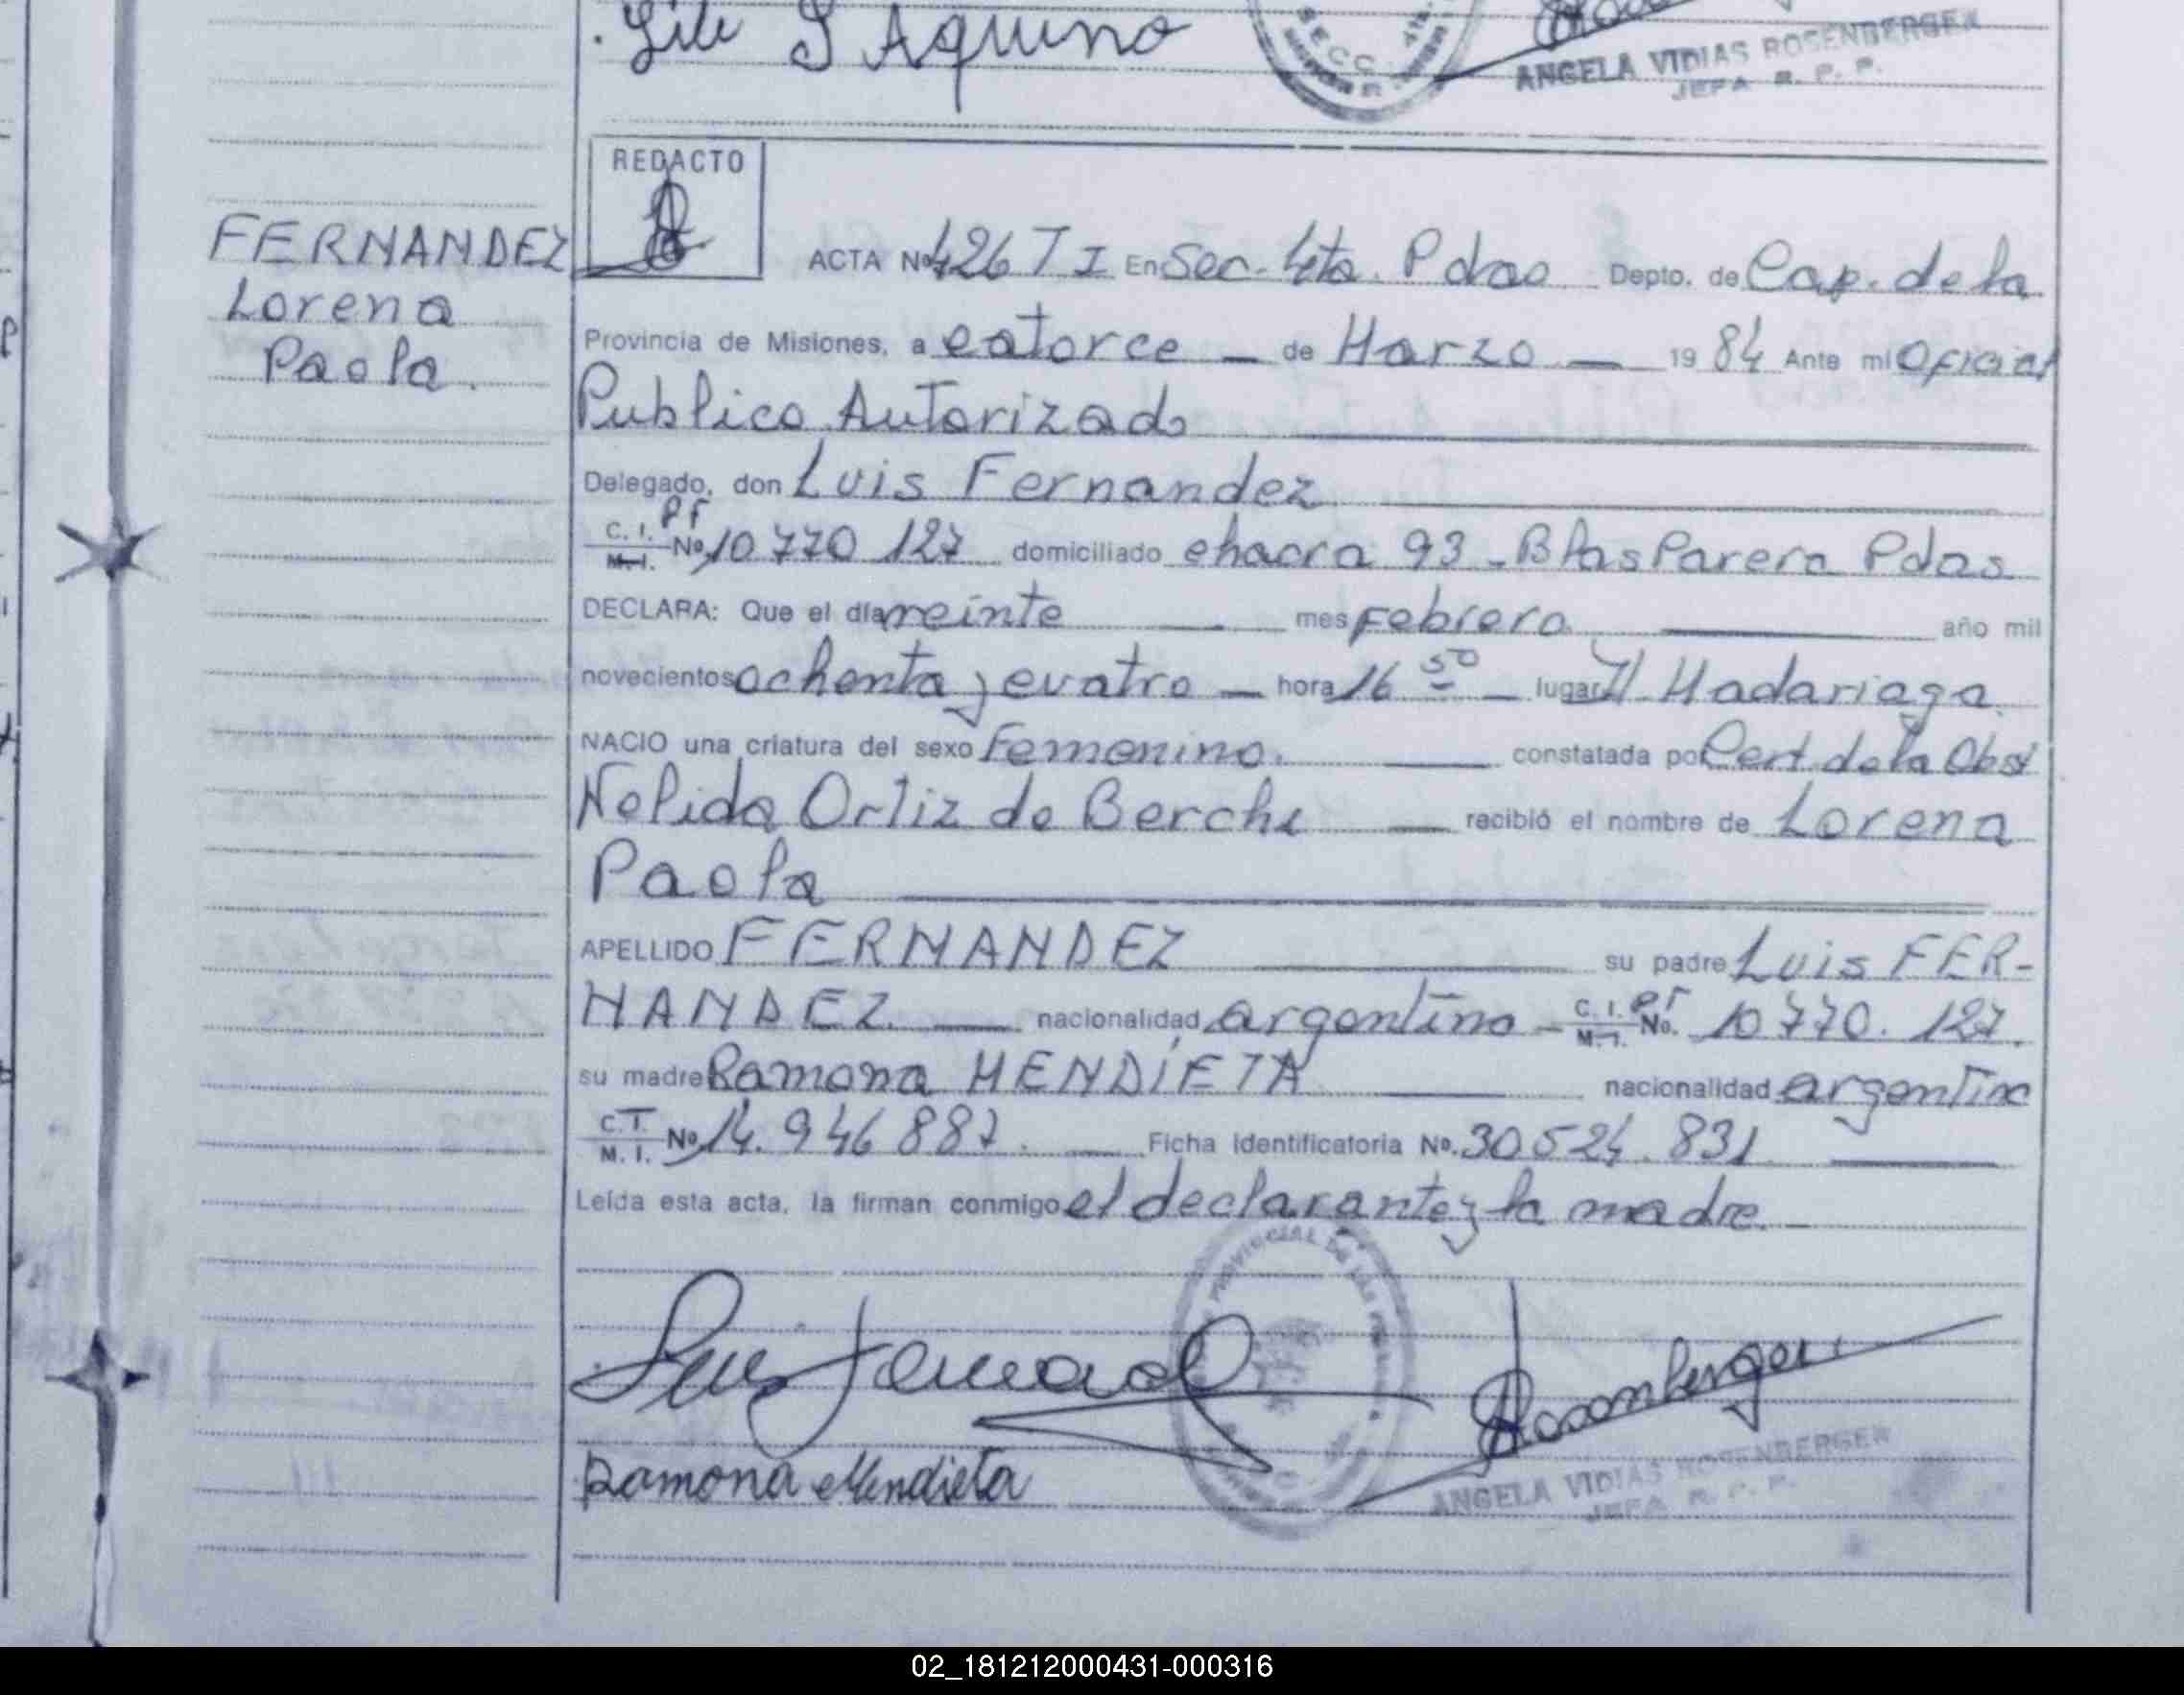 Lili S Aquino
SECC. 4ta.
ANGELA VIDIAS ROSENBERGER
JEFA R. P. P.
REDACTO
FERNANDEZ
Lorena
Paola.
ACTA Nº 426 T I En Sec. 4ta. Pdas Depto. de Cap. de la
Provincia de Misiones, a catorce — de Marzo — 19 84 Ante mi Oficial
Publico Autorizado
Delegado, don Luis Fernandez
C. I. PF
M. I. Nº 10 770 127 domiciliado chacra 93 - Blas Parera Pdas
DECLARA: Que el día veinte — mes Febrero — año mil
novecientos ochenta y cuatro — hora 16 50 — lugar H. Madariaga.
NACIO una criatura del sexo Femenino. — constatada por Cert. de la Obst
Nelida Ortiz de Berchi — recibió el nombre de Lorena
Paola
APELLIDO FERNANDEZ — su padre Luis FER-
NANDEZ — nacionalidad argentino - C. I. PF M. I. No. 10 770. 127.
su madre Ramona MENDIETA — nacionalidad argentina
C. I. M. I. Nº 14. 946 887. — Ficha Identificatoria Nº. 30 524. 831
Leída esta acta, la firman conmigo el declarante y la madre.
PROVINCIAL DE LAS
Luis Fernandez
Rosenberger
Ramona Mendieta
ANGELA VIDIAS ROSENBERGER
JEFA R. P. P.
02_181212000431-000316